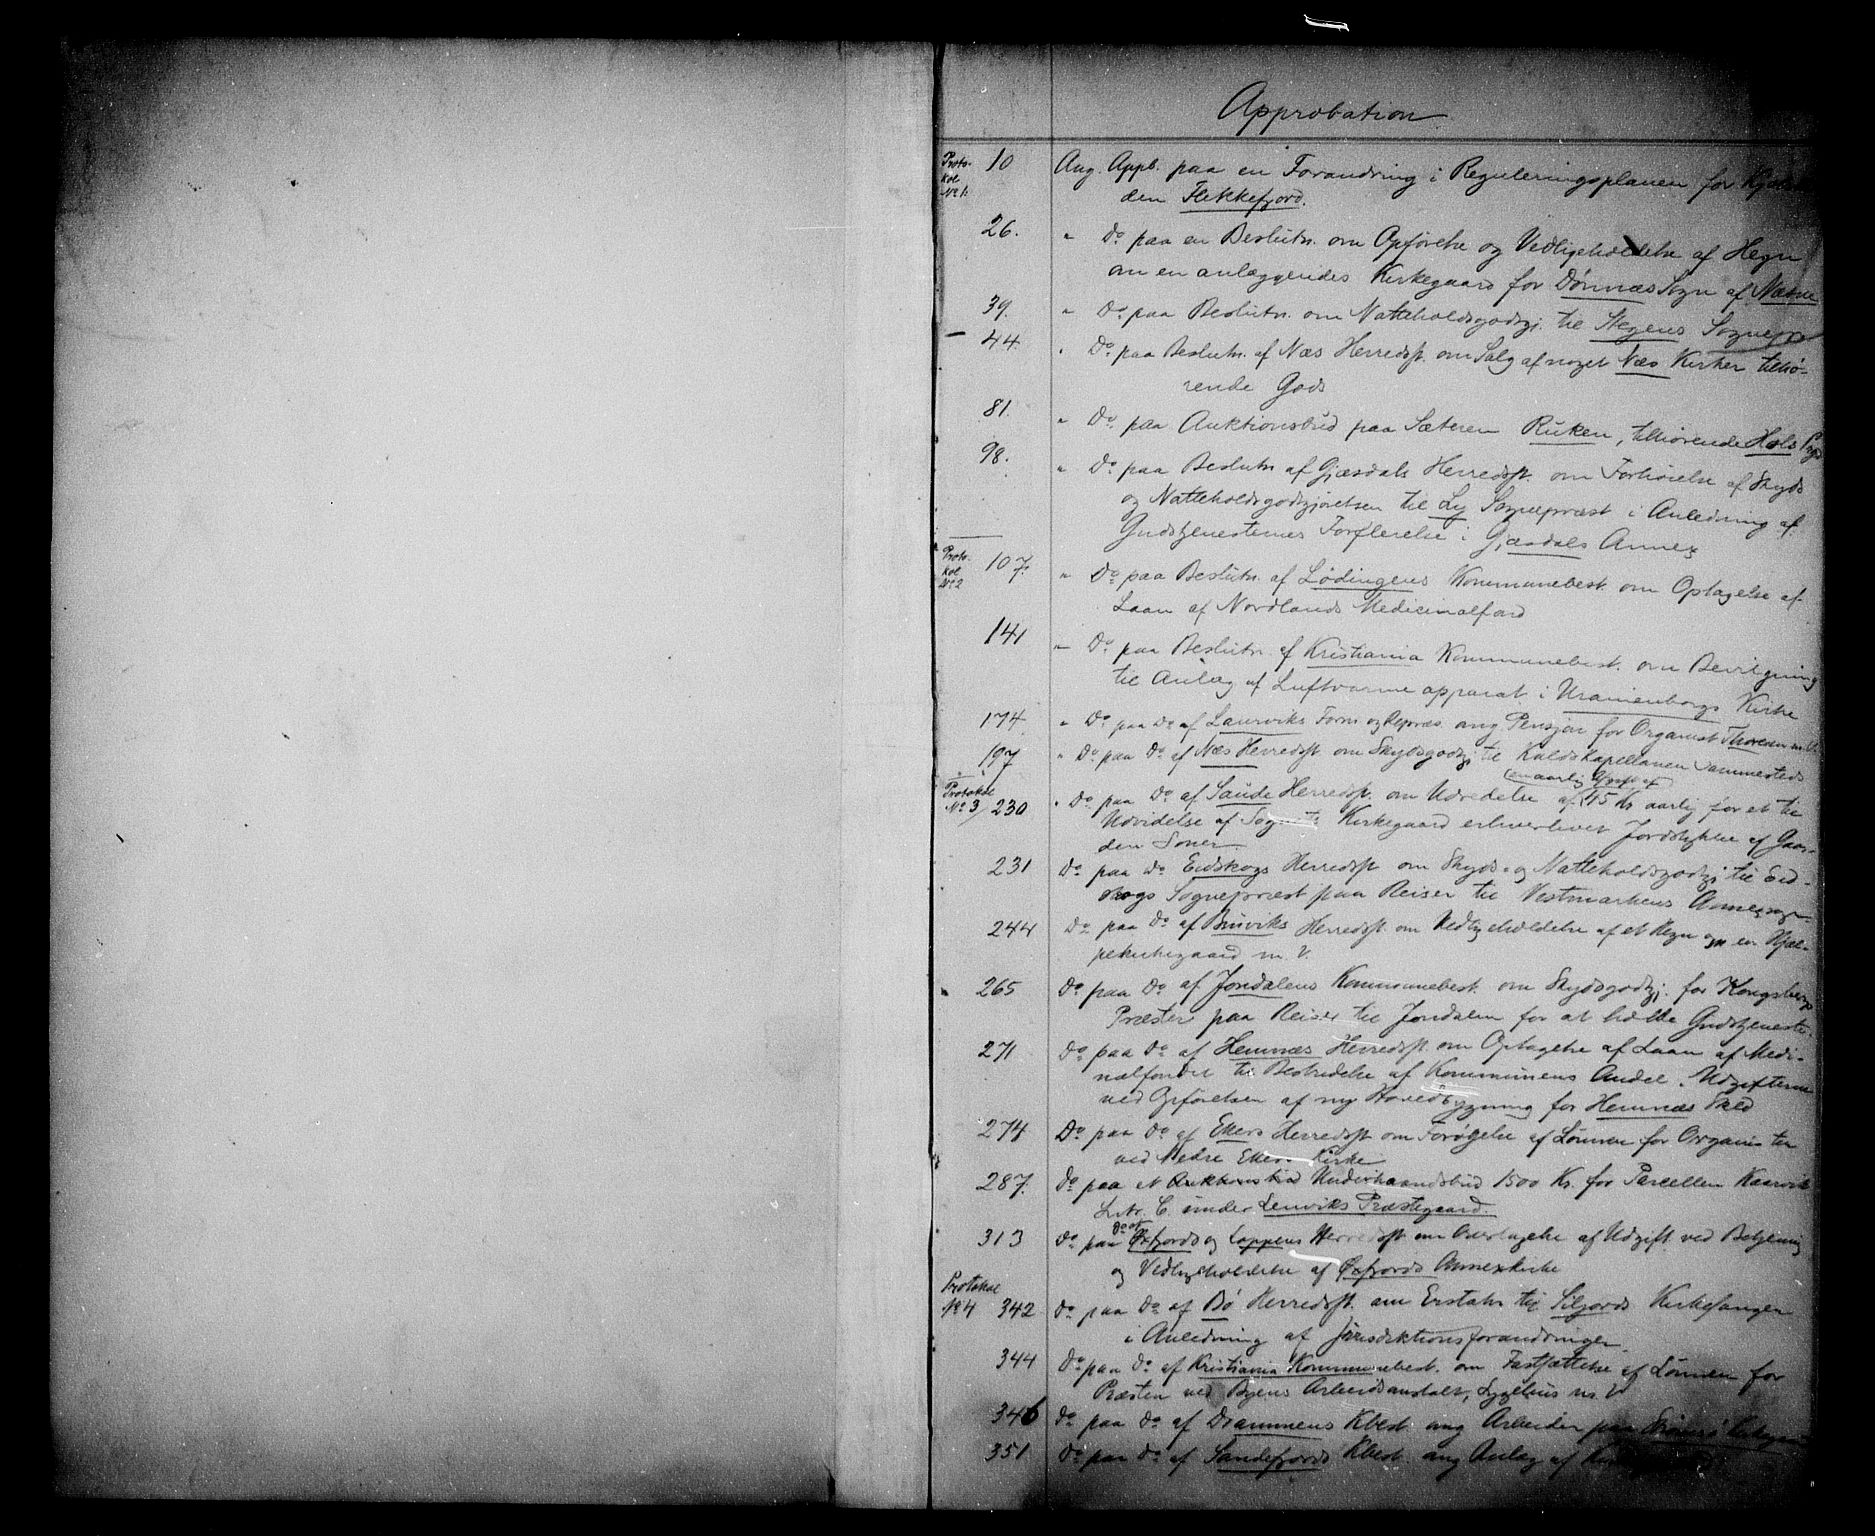 Approbation
Proto-
kol
No 1.
10 Ang. Appb. paa en Forandring i Reguleringsplanen for
den Flekkefjord.
26. " Do paa en Beslutn. om Opførelse og Vedligeholdelse af Hegn
om en anlæggendes Kirkegaard for Dønnæs Sogn af Næsne
39. " Do paa Beslutn. om Natteholdsgodtgj. til Stegens Sognepr
44. " Do paa Beslutn. af Næs Herredsst. om Salg af noget Næs Kirker tilhø-
rende Gods
81. " Do paa Auktionsbud paa Sæteren Ruken, tilhørende Hols Prgd
98. " Do paa Beslutn. af Gjæsdals Herredsst. om Forhøielse af Skyds
og Natteholdsgodtgjørelsen til Ly Sognepræst i Anledning af
Gudstjenesternes Forflerelse i Gjæsdals Annex
Proto-
kol
No 2
107. " Do paa Beslutn. af Lødingens Kommunebest. om Optagelse af
Laan af Nordlands Medicinalfond
141 " Do paa Beslutn. af Kristiania Kommunebest. om Bevilgning
til Anlæg af Luftvarmeapparat i Uranienborgs Kirke
174. " Do paa Do af Laurviks Form og Repræs. ang Pensjon for Organist
197 " Do paa Do af Næs Herredsst om Skydsgodtgj til Kaldskapellanen sammesteds
Protokol
No 3/ 230 " Do paa Do af Saude Herredsst. om Udredelse af 45 Kr aarlig for et til
Udvidelse af Sognets Kirkegaard erhvervet Jordstykke af Gaar-
den
231 Do paa Do Eidskogs Herredsst om Skyds- og Natteholdsgodtgj til Eid-
skogs Sognepræst paa Reiser til Vestmarkens Annexsogn
244 Do paa Do af Buviks Herredsst. om Vedligeholdelse af et Hegn om en Hjæl-
pekirkegaard m. V.
265 Do paa Do af Jondalens Kommunebest. om Skydsgodtgj. for Kongsbergs
Præster paa Reiser til Jondalen for at holde Gudstjeneste
271 Do paa Do af Hemnæs Herredsst. om Optagelse af Laan af Medi-
nalfondet til Bestridelse af Kommunens Andel i Udgifterne
ved Opførelsen af ny Hovedbygning for Hemnæs Præ
274 Do paa Do af Ekers Herredsst om Forøgelse af Lønnen for Organisten
ved Nedre Ekers Kirke
287. Do paa et Auktionsbud Underhaandsbud 1500 Kr. for Parcellen Kaarvik
Litr. C. under Lenviks Præstegaard.
Do af
313 Do paa Øxfjords og Loppens Herredsst om Overtagelse af Udgift ved Betjening
og Vedligeholdelse af Øxfjords Annexkirke
Protokol
No 4 342 Do paa Do af Bø Herredsst. om Erstatn til Siljords Kirkesanger
i Anledning af Jurisdiktionsforandringer
344 Do paa Do af Kristiania Kommunebest. om Fastsættelse af Lønnen for
Præsten ved Byens Arbeidsanstalt, Sygehus m. V
346 Do paa Do af Drammens Kbest. ang Arbeider paa
351 Do paa Do af Sandefjords Kbest. ang Anlæg af